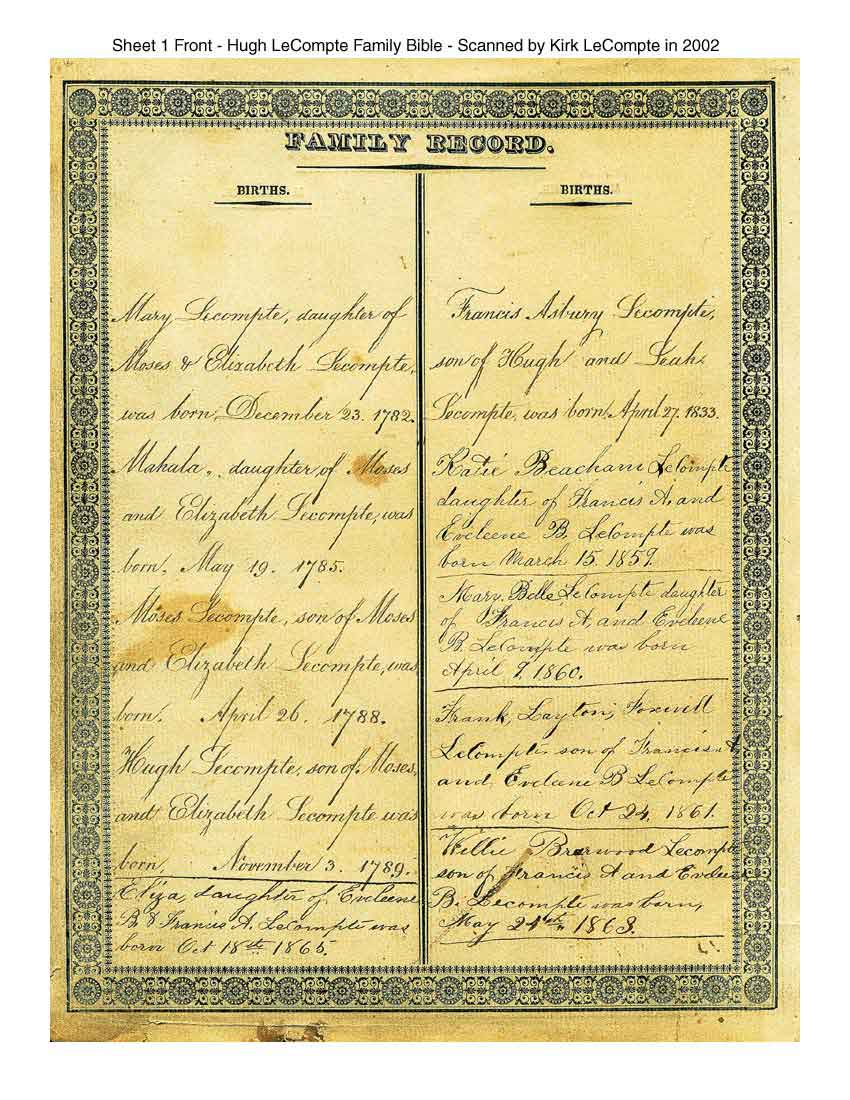 Sheet 1 Front - Hugh LeCompte Family Bible - Scanned by Kirk LeCompte in 2002
FAMILY RECORD.
BIRTHS.
Mary Lecompte, daughter of
Moses & Elizabeth Lecompte,
was born, December 23. 1782.
Mahula, daughter of Moses
and Elizabeth Lecompte, was
born. May 19. 1785.
Moses Lecompte, son of Moses
and Elizabeth Lecompte, was
born. April 26. 1788.
Hugh Lecompte, son of Moses,
and Elizabeth Lecompte was
born, November 3. 1789.
Eliza, daughter of Eveleene
B & Francis A. LeCompte was
born Oct 18th 1865.
BIRTHS.
Francis Asbury Lecompte,
son of Hugh and Leah
Lecompte, was born, April 27. 1833.
Katie Beacham LeCompte
daughter of Francis A, and
Eveleene B. LeCompte was
born March 15. 1859.
Mary Belle LeCompte daughter
of Francis A, and Eveleene
B. LeCompte was born
April 9. 1860.
Frank, Layton, Foxwill
LeCompte son of Francis A
and Eveleene B LeCompte
was born Oct 24, 1861.
Willie Lecompte
son of Francis A and
B. Lecompte was born,
May 24th, 1863.